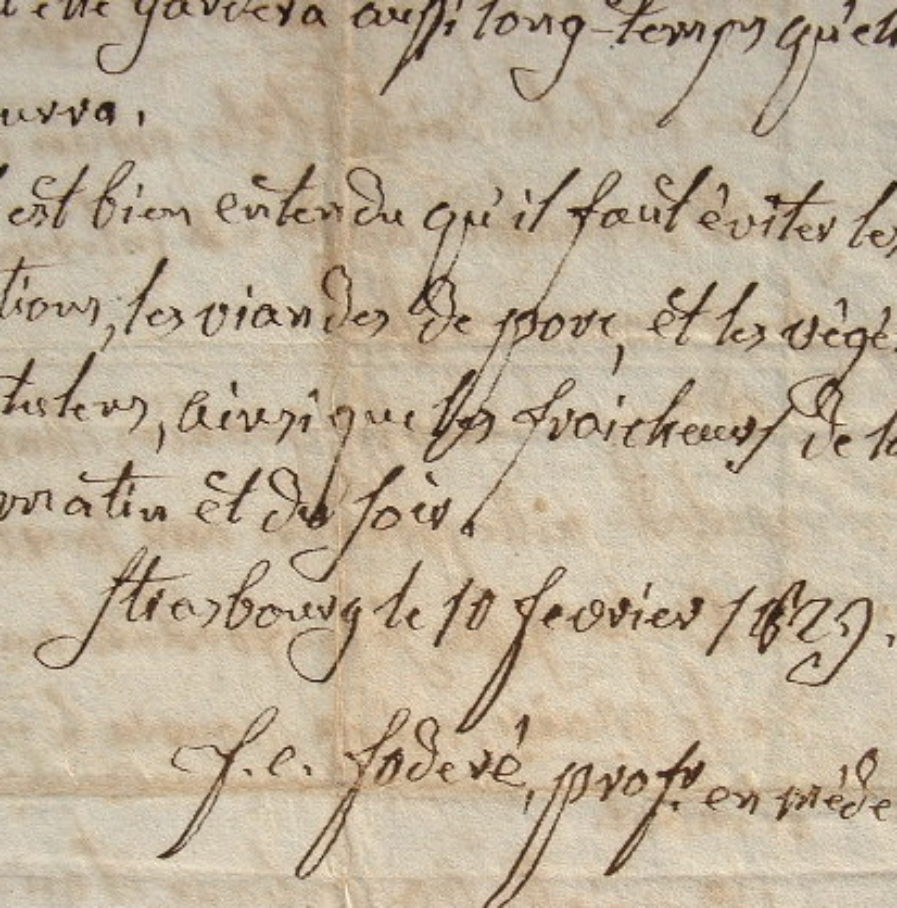 elle gardera aussi long-temps qu'ell
urra.
est bien entendu qu'il faut éviter les
tions, les viandes de porc, et les végé
ainsi que les fraicheurs de la
matin et du soir.
Strasbourg le 10 fevrier 1829.
f. e. foderé, profr. en méde